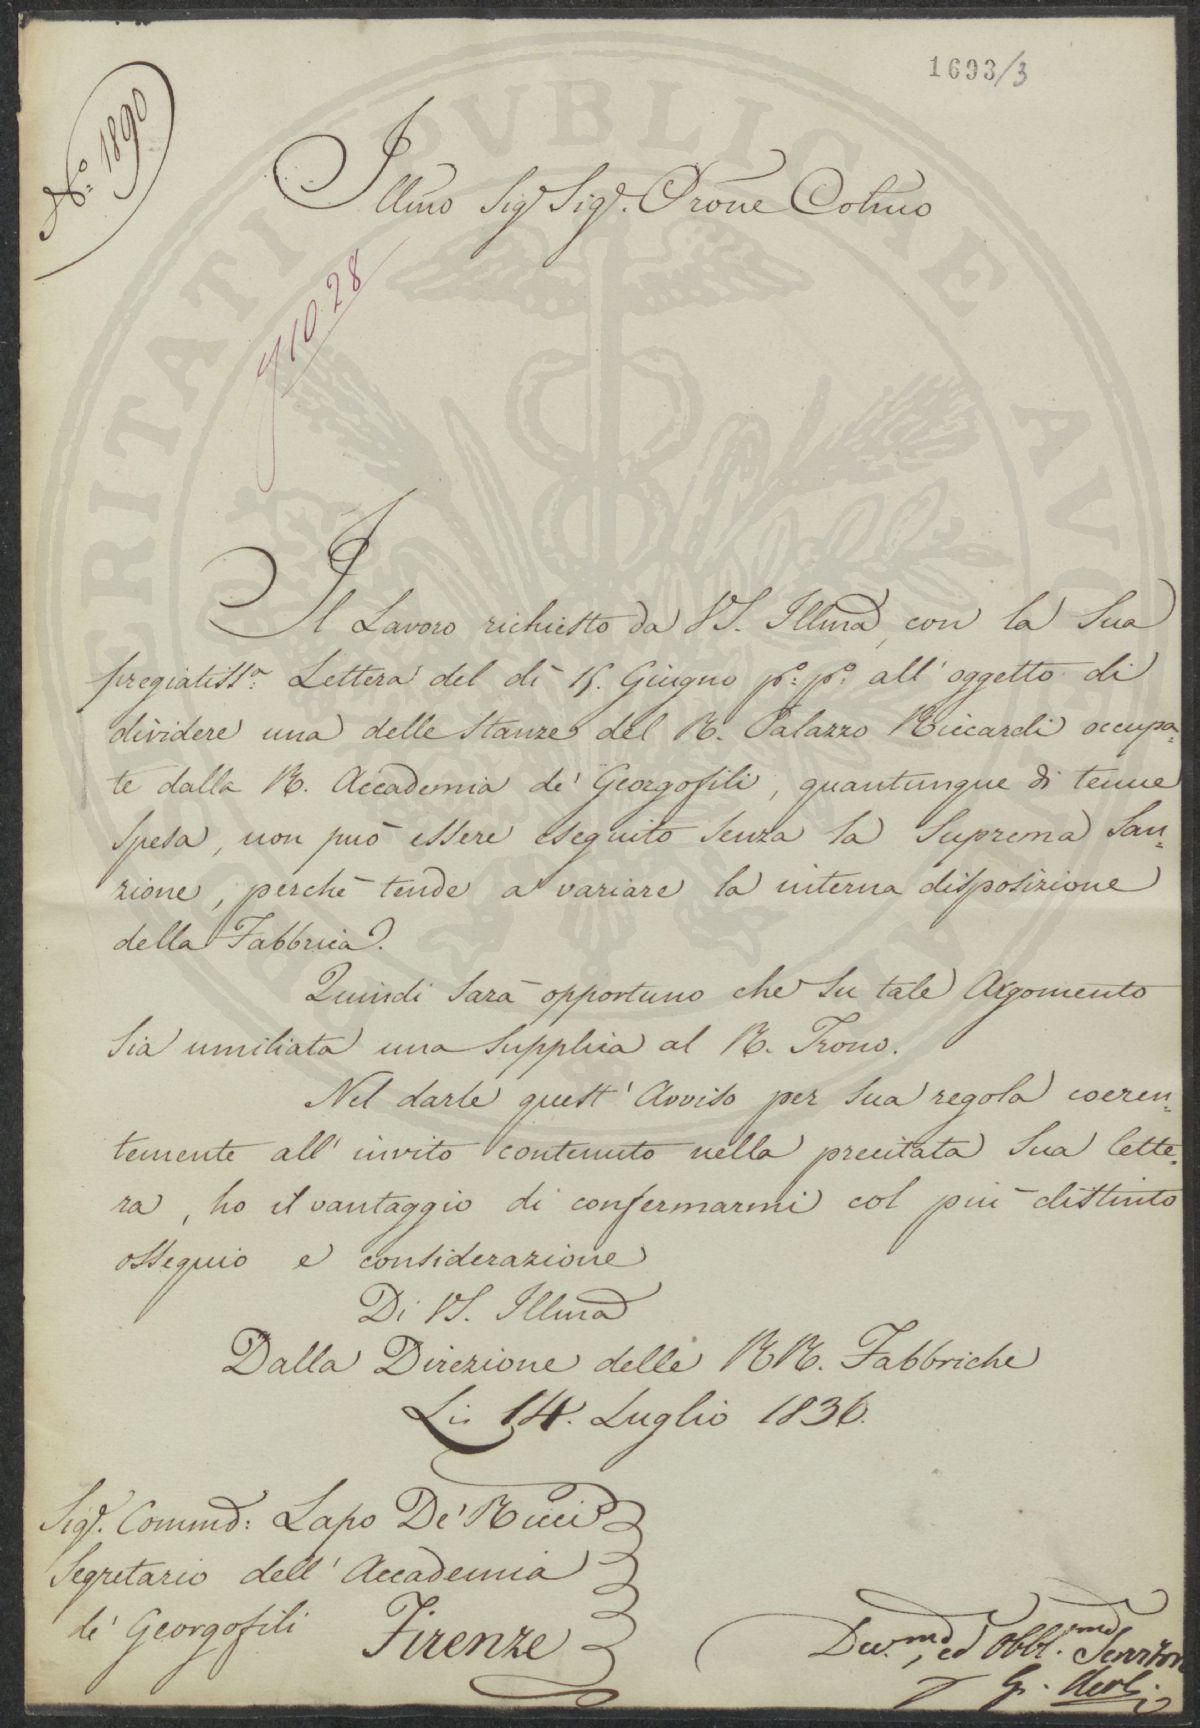 1693/3
N.º 1890
Illmo Sig.r Sig.r Prone Colmo
10.28
Il Lavoro richiesto da VS. Illma con la Sua
pregiatiss.a Lettera del dì 15. Giugno p.º p.º all' oggetto di
dividere una delle Stanze del R. Palazzo Riccardi occupa=
te dalla R. Accademia de' Georgofili, quantunque di tenue
spesa, non può essere eseguito senza la Suprema San=
zione, perchè tende a variare la interna disposizione
della Fabbrica.
Quindi sarà opportuno che su tale Argomento
sia umiliata una supplica al R. Trono.
Nel darle quest' Avviso per sua regola coeren=
temente all' invito contenuto nella precitata Sua lette=
ra, ho il vantaggio di confermarmi col più distinto
ossequio e considerazione
Di VS. Illma
Dalla Direzione delle RR. Fabbriche
Li 14. Luglio 1836.
Sig.r Commd: Lapo De' Ricci
Segretario dell' Accademia
de' Georgofili Firenze
Dev.mo, ed Obbl.mo Servitore
G.